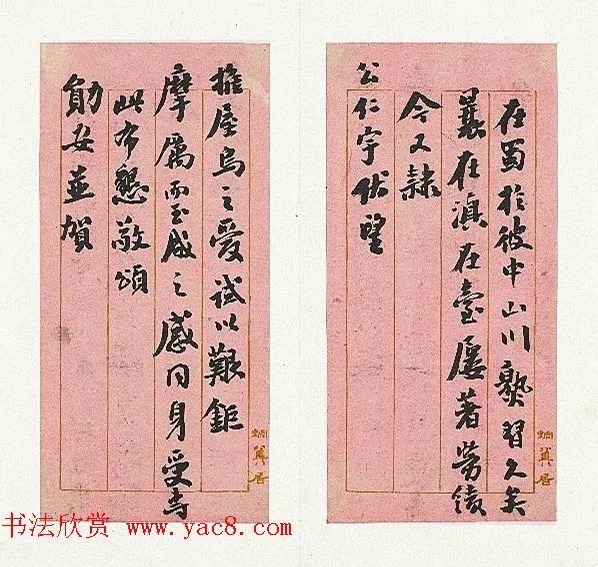 在蜀於彼中山川熟習久矣
曩在滇在臺屢著勞績
今又隸
公仁宇伏望
推屋烏之愛試以艱鉅
摩厲而玉成之感同身受專
此布懇敬頌
勛安並賀
书法欣赏 www.yac8.com